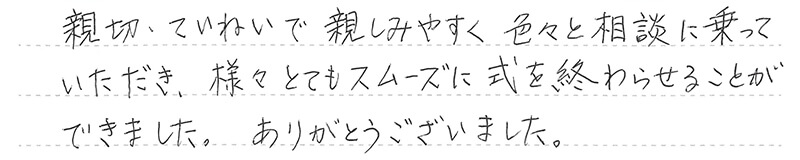 親切・ていねいで 親しみやすく 色々と相談に乗って
いただき、様々とてもスムーズに式を終わらせることが
できました。 ありがとうございました。